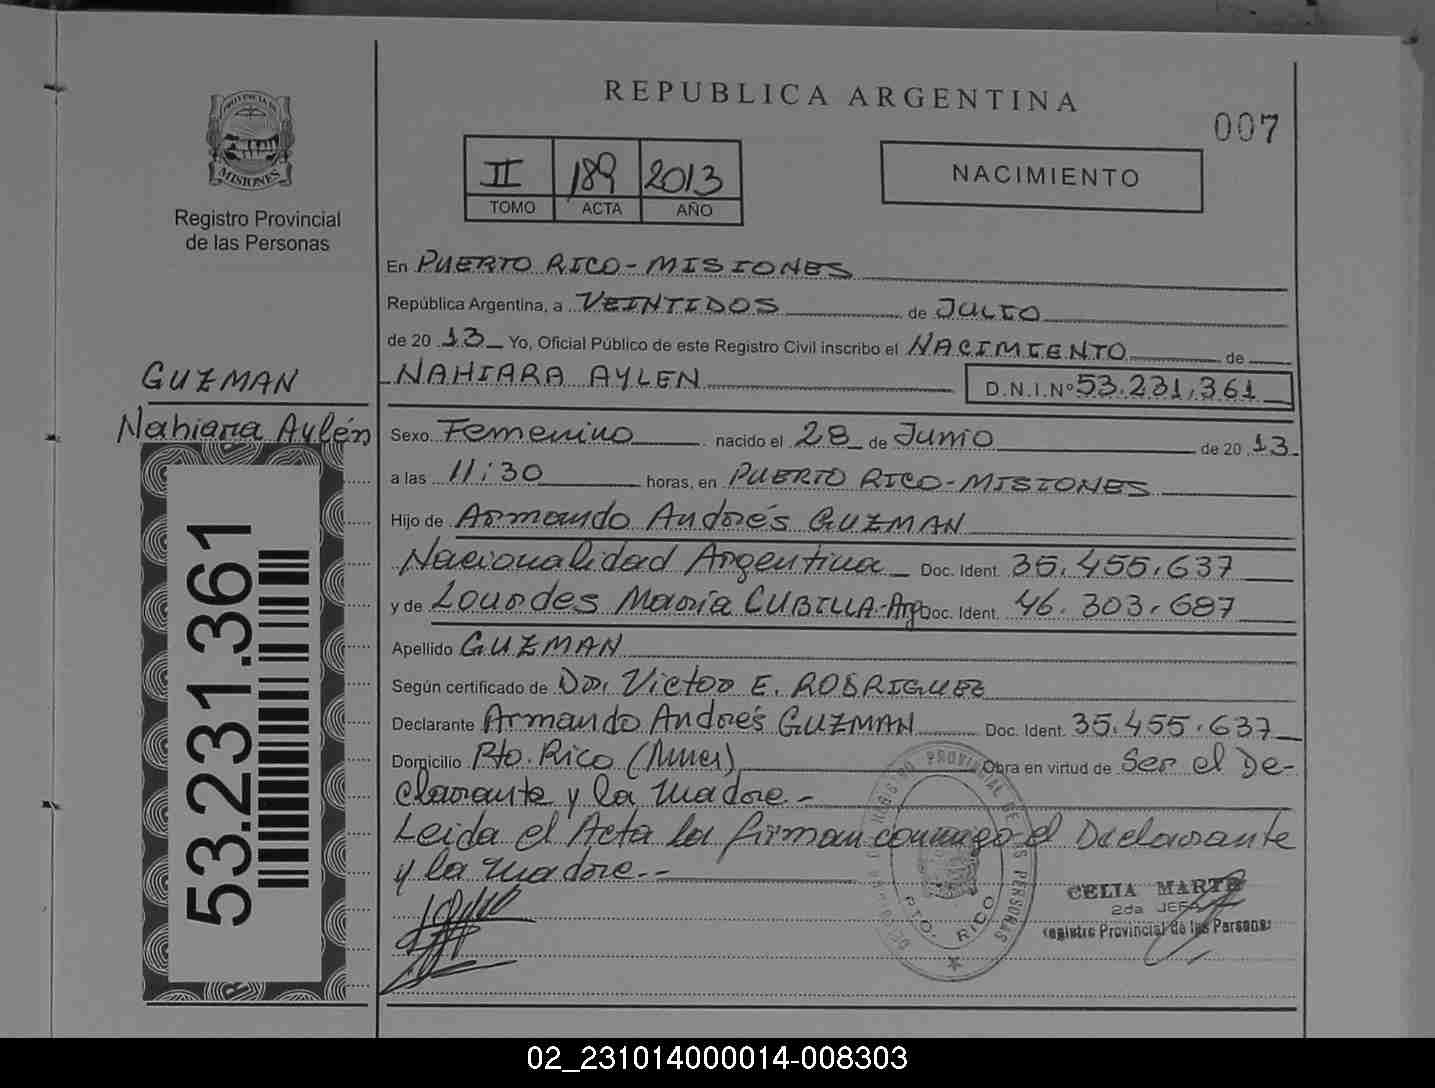 REPUBLICA ARGENTINA
007
PROVINCIA DE
MISIONES
Registro Provincial
de las Personas
II 189 2013
TOMO ACTA AÑO
NACIMIENTO
En PUERTO RICO - MISIONES
República Argentina, a VEINTIDOS de JULIO
de 20 13 Yo, Oficial Público de este Registro Civil inscribo el NACIMIENTO de
NAHIARA AYLEN D.N.I.Nº 53.231.361
GUZMAN
Nahiara Aylén
53.231.361
Sexo Femenino nacido el 28 de Junio de 20 13
a las 11:30 horas, en PUERTO RICO - MISIONES
Hijo de Armando Andrés GUZMAN
Nacionalidad Argentina Doc. Ident. 35.455.637
y de Lourdes María CUBILLA-Arg Doc. Ident. 46.303.687
Apellido GUZMAN
Según certificado de Dr. Victor E. RODRIGUEZ
Declarante Armando Andrés GUZMAN Doc. Ident. 35.455.637
Domicilio Pto. Rico (Mnes) Obra en virtud de Ser el De-
clarante y la madre.-
Leida el Acta la firman conmigo el Declarante
y la madre.--
REGISTRO PROVINCIAL DE LAS PERSONAS
PTO. RICO
CELIA MARTA
2da JEFA
Registro Provincial de las Personas
02_231014000014-008303